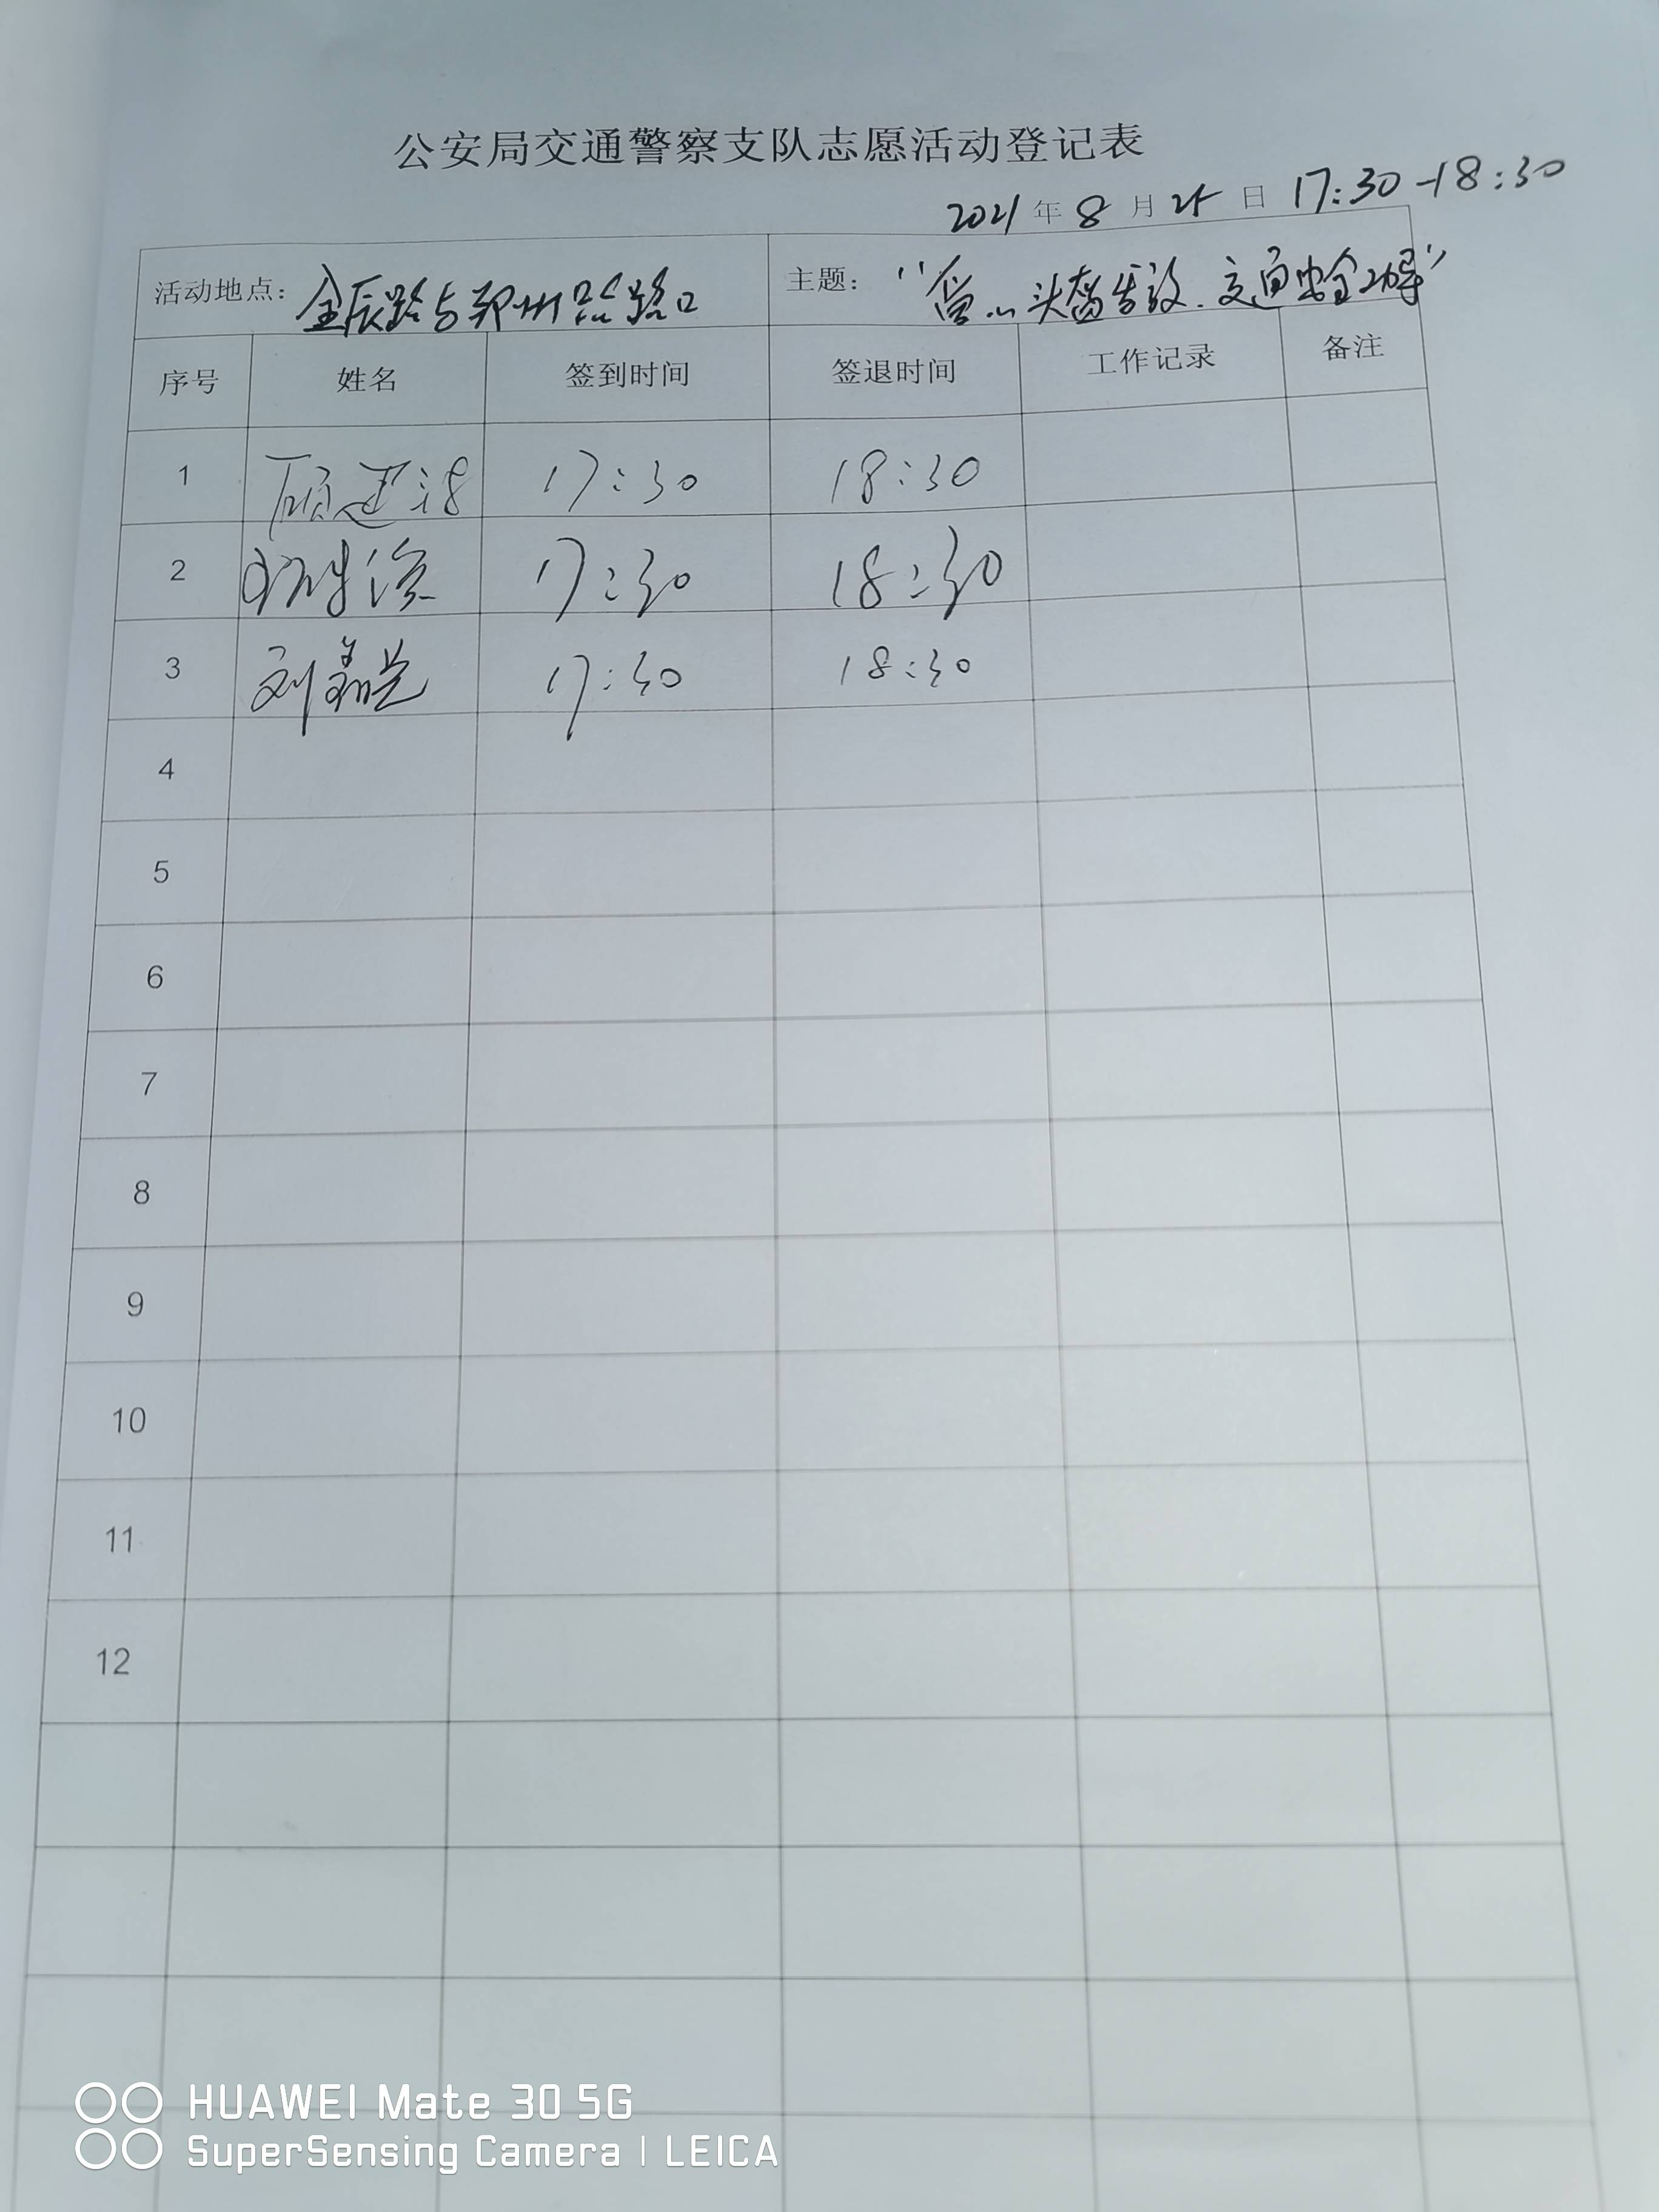 公安局交通警察支队志愿活动登记表
2021年8月25日 17:30-18:30
活动地点：金辰路与郑州路路口 主题："爱心头盔发放.交通安全劝导"
序号 姓名 签到时间 签退时间 工作记录 备注
1 17:30 18:30
2 17:30 18:30
3 刘 17:30 18:30
4
5
6
7
8
9
10
11
12
HUAWEI Mate 30 5G
SuperSensing Camera | LEICA